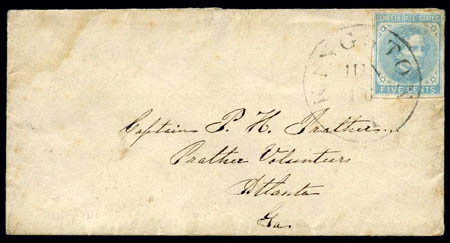 CONFEDERATE STATES
FIVE CENTS
Captain P. H. Prather
Prather Volunteers
Atlanta
Ga.